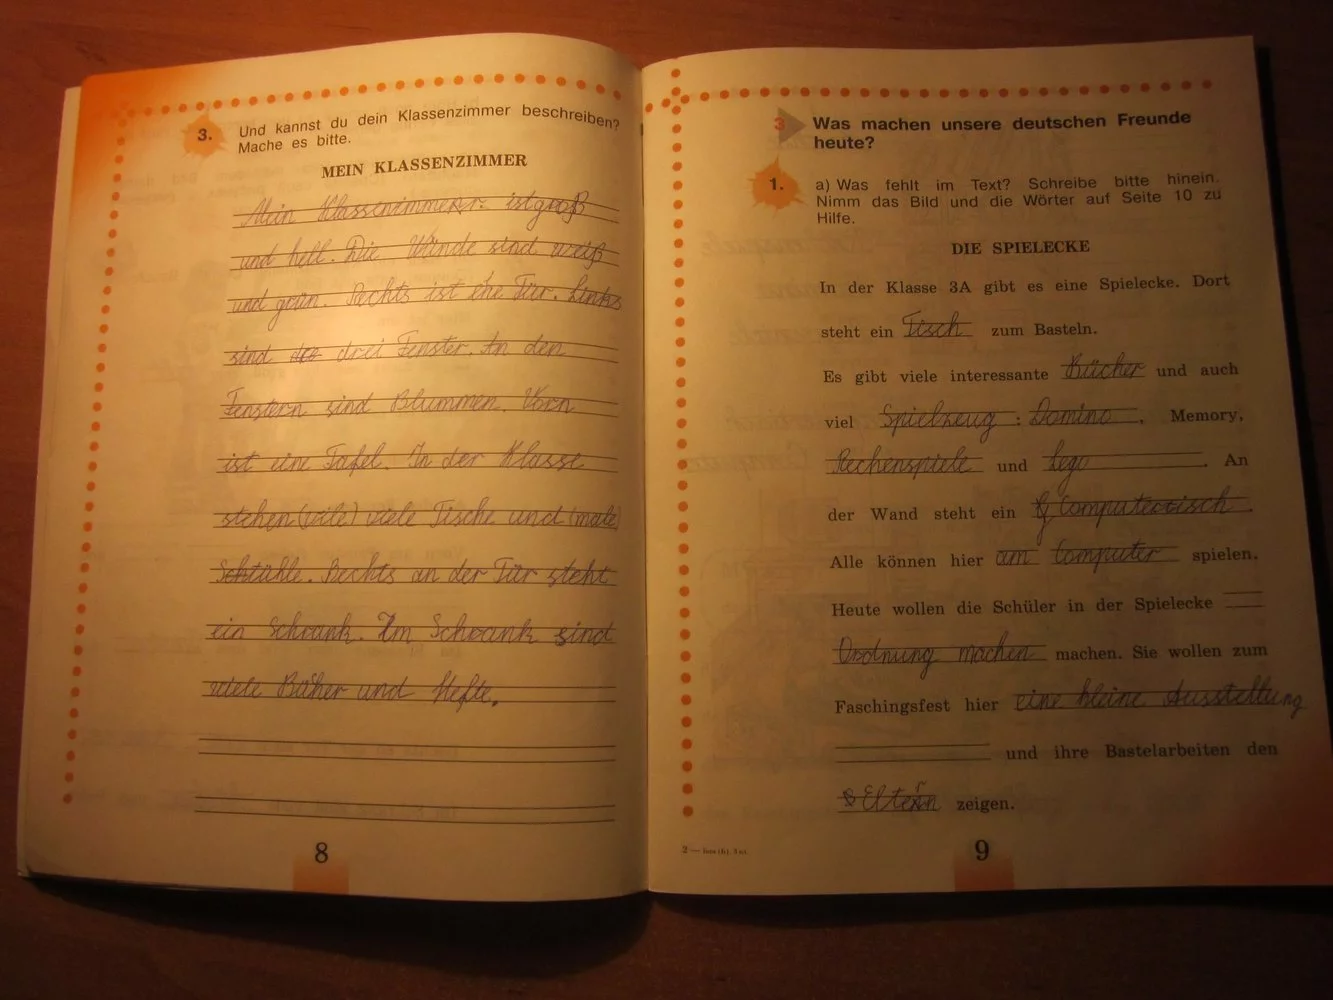 3. Und kannst du dein Klassenzimmer beschreiben?
Mache es bitte.
MEIN KLASSENZIMMER
Mein Klassenzimmer ist groß
und hell. Die Wände sind weiß
und grün. Rechts ist eine Tür. Links
sind drei Fenster. An den
Fenstern sind Blummen. Vorn
ist eine Tafel. In der Klasse
stehen (vile) viele Tische und (male)
Schtühle. Rechts an der Tür steht
ein Schrank. Im Schrank sind
viele Büher und Hefte.
8
3 Was machen unsere deutschen Freunde
heute?
1. a) Was fehlt im Text? Schreibe bitte hinein.
Nimm das Bild und die Wörter auf Seite 10 zu
Hilfe.
DIE SPIELECKE
In der Klasse 3A gibt es eine Spielecke. Dort
steht ein Tisch zum Basteln.
Es gibt viele interessante Bücher und auch
viel Spielzeug : Domino, Memory,
Rechenspiele und Lego. An
der Wand steht ein Computertisch.
Alle können hier am Computer spielen.
Heute wollen die Schüler in der Spielecke
Ordnung machen machen. Sie wollen zum
Faschingsfest hier eine kleine Ausstellung
und ihre Bastelarbeiten den
Eltern zeigen.
9